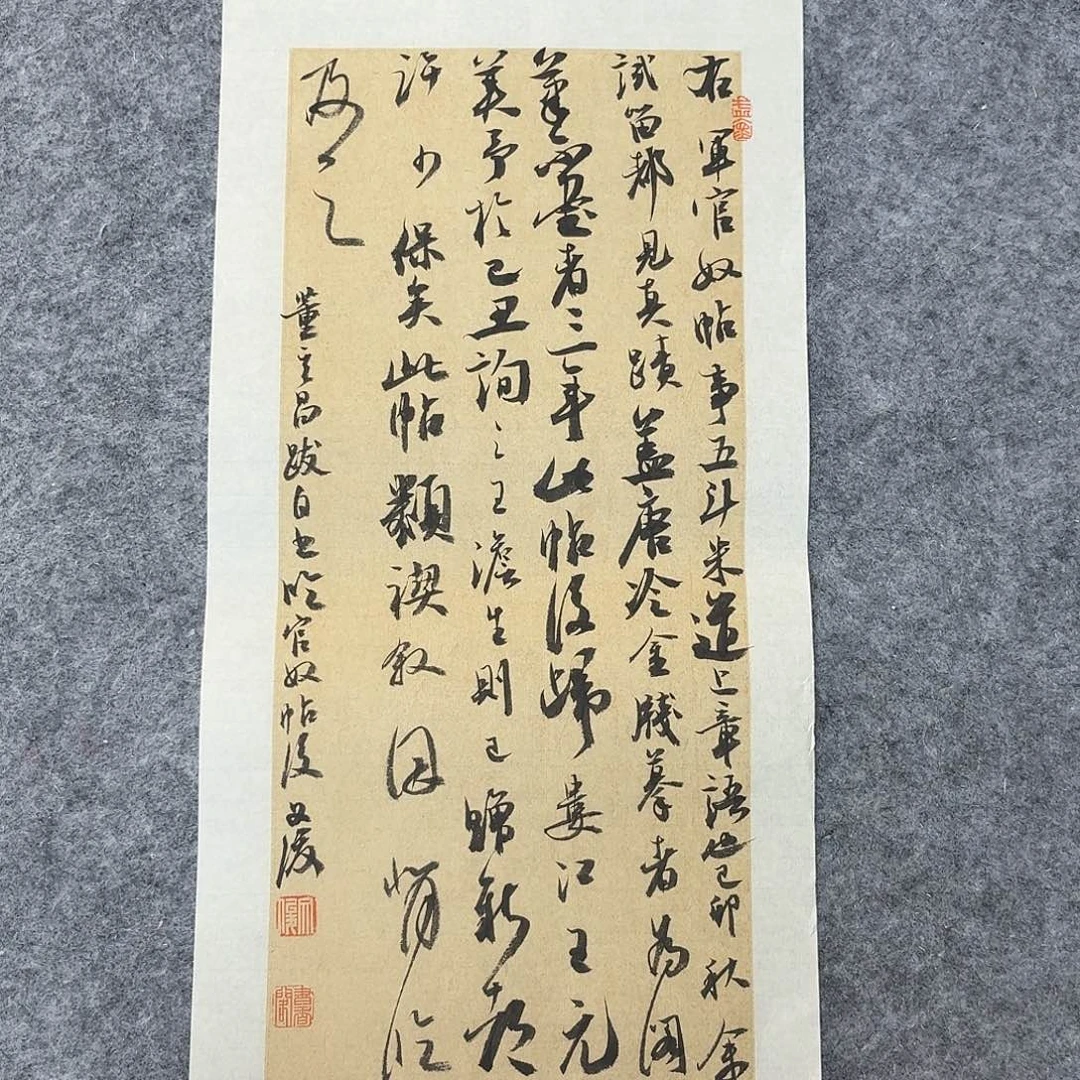 右軍官奴帖事五斗米道上章語也己卯秋余
試留都見真蹟蓋唐冷金牋摹者為閣
筆不書者三年此帖後歸婁江王元
美予於己丑詢之王澹生則已贈新都
許少保矣此帖類禊叙因背臨
及之
董其昌跋自書臨官奴帖後